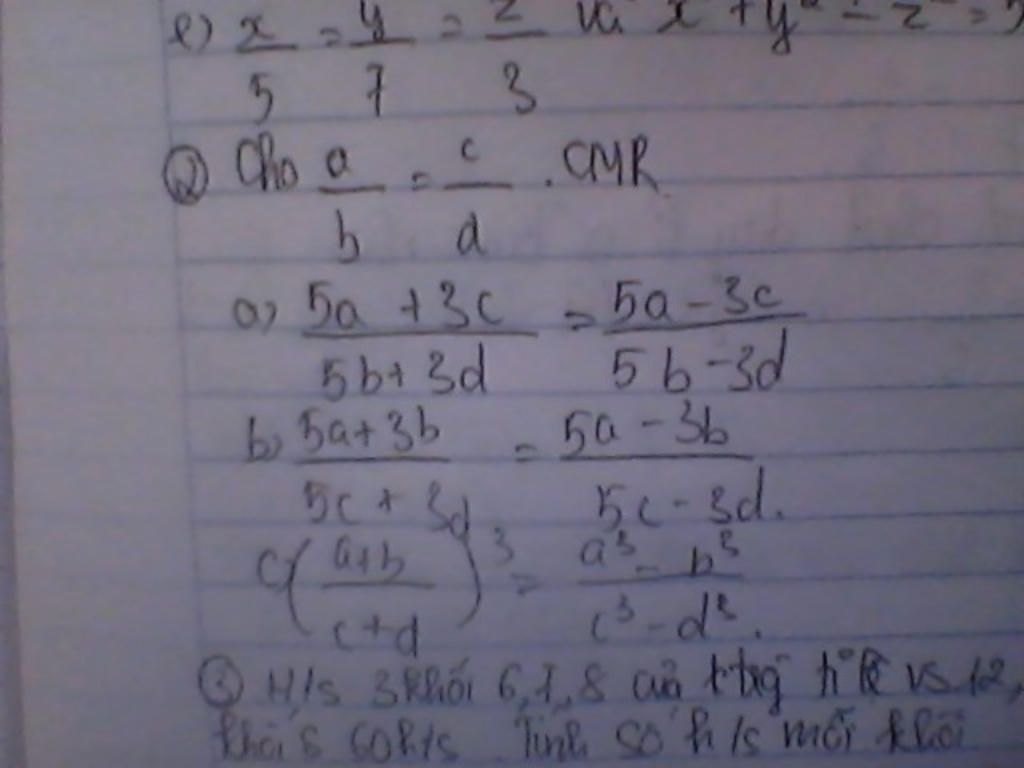 e) x/5 = y/7 = z/3 và x + y - z =
② Cho a/b = c/d . CMR
a) (5a + 3c)/(5b + 3d) = (5a - 3c)/(5b - 3d)
b) (5a + 3b)/(5c + 3d) = (5a - 3b)/(5c - 3d).
c) ((a+b)/(c+d))³ = (a³ - b³)/(c³ - d³).
③ H/s 3 khối 6,7,8 của vs 12,
khối 60 h/s. Tính số h/s mỗi khối